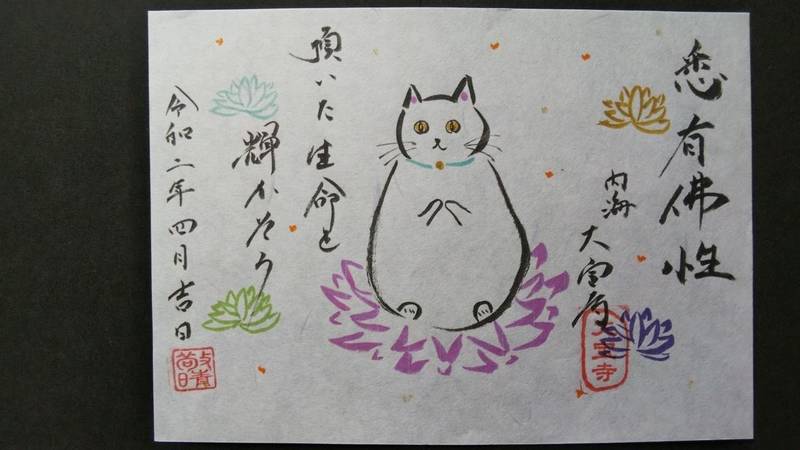 悉有佛性
内海
大室庵
頂いた生命を
輝かそう
令和二年四月吉日